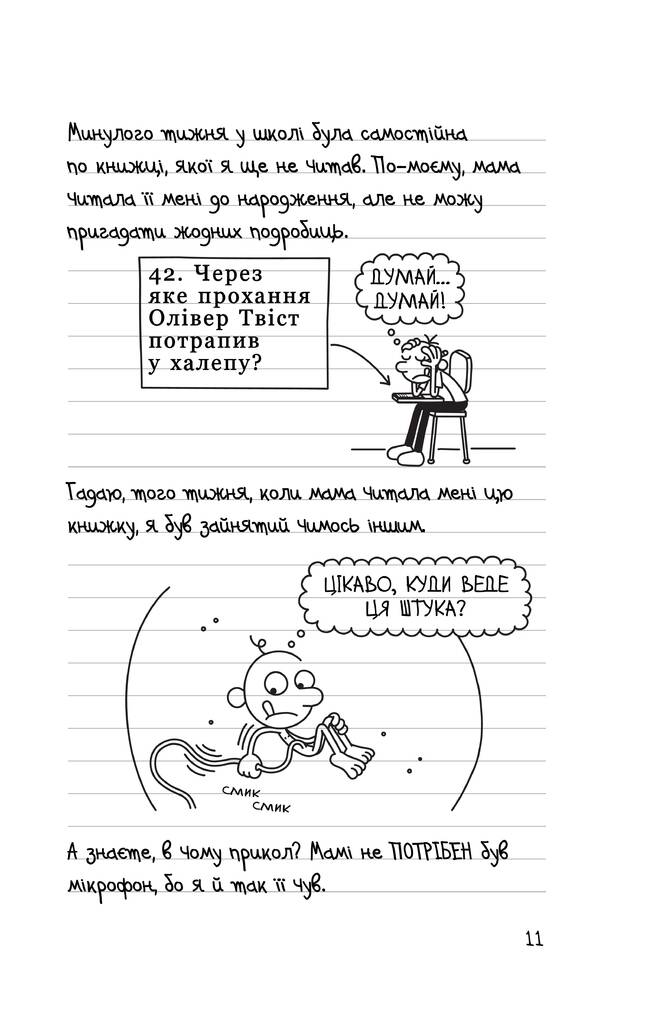 Минулого тижня у школі була самостійна
по книжці, якої я ще не читав. По-моєму, мама
читала її мені до народження, але не можу
пригадати жодних подробиць.
42. Через
яке прохання
Олівер Твіст
потрапив
у халепу?
ДУМАЙ...
ДУМАЙ!
Гадаю, того тижня, коли мама читала мені цю
книжку, я був зайнятий чимось іншим.
ЦІКАВО, КУДИ ВЕДЕ
ЦЯ ШТУКА?
СМИК
СМИК
А знаєте, в чому прикол? Мамі не ПОТРІБЕН був
мікрофон, бо я й так її чув.
11